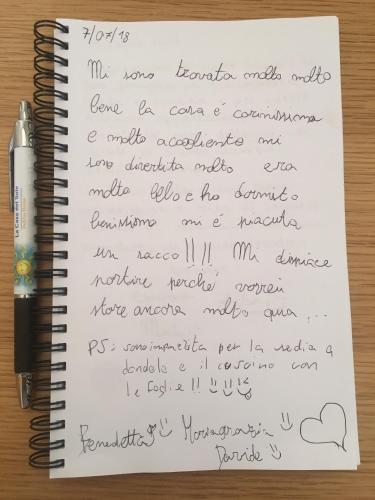 7/07/18
Mi sono trovata molto molto
bene la casa é carinissima
e molto accogliente mi
sono divertita molto era
molto bello e ho dormito
benissimo mi é piaciuta
un sacco!!!! Mi dispiace
partire perché vorrei
stare ancora molto qua...
PS: sono impazzita per la sedia a
dondolo e il cuscino con
le foglie!!
Benedetta Mariagrazia
Davide
La Casa del Sole